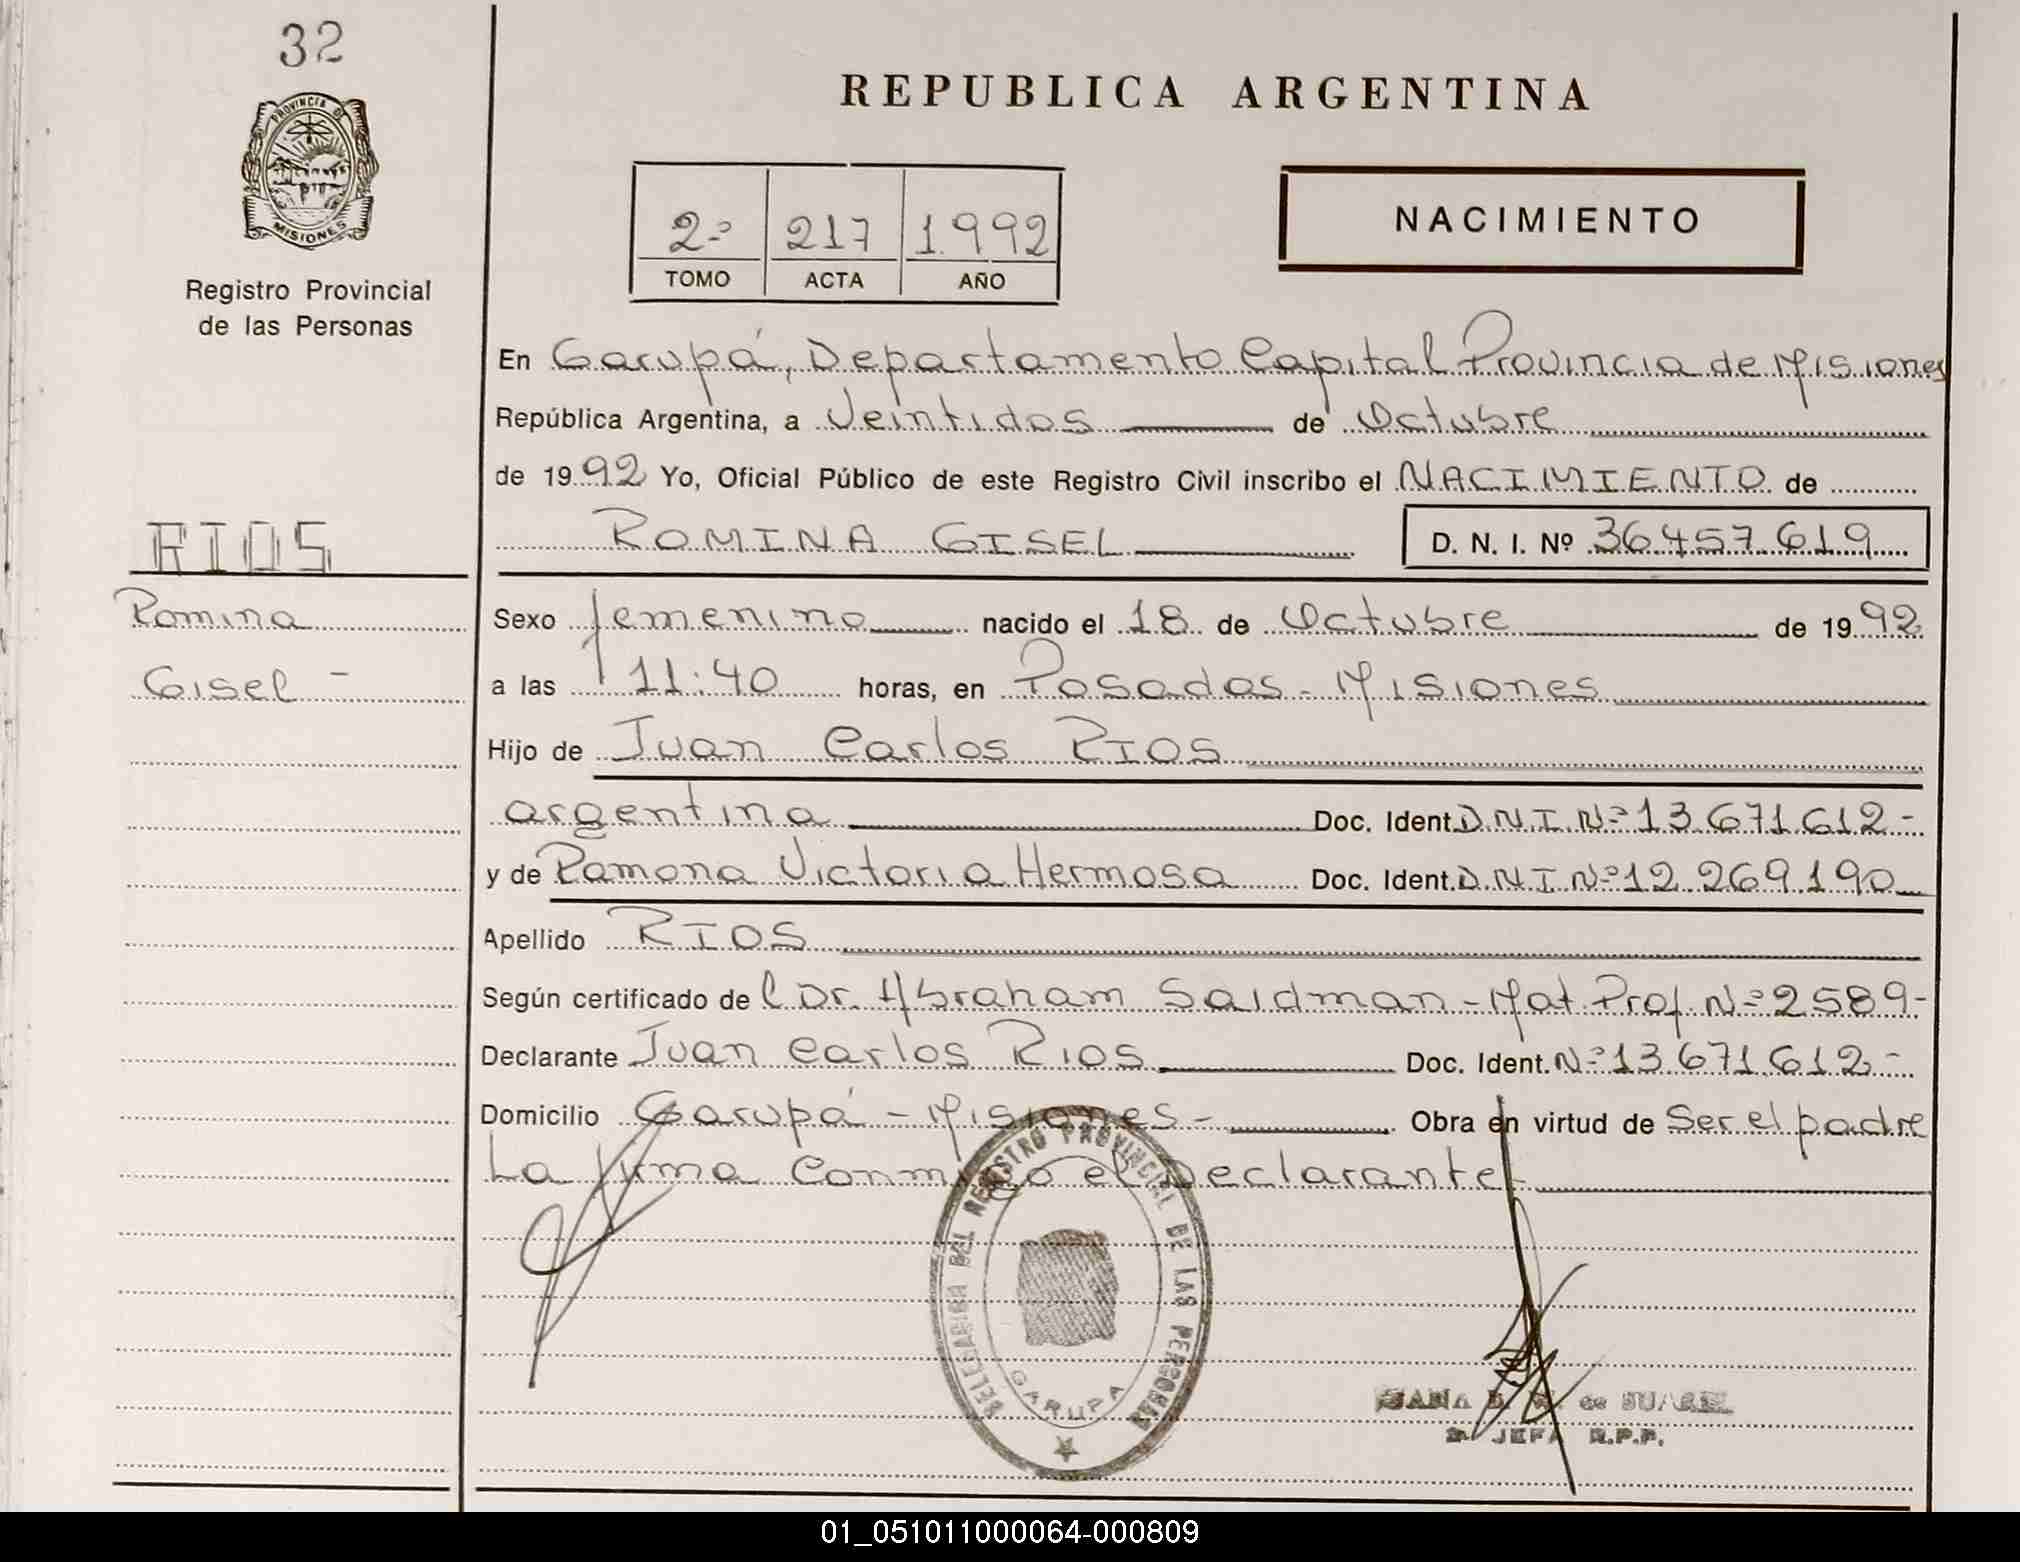 32
PROVINCIA DE
MISIONES
Registro Provincial
de las Personas
RIOS
Romina
Gisel -
REPUBLICA ARGENTINA
2º 217 1.992
TOMO ACTA AÑO
NACIMIENTO
En Garupá, Departamento Capital Provincia de Misiones
República Argentina, a Veintidos de Octubre
de 1992 Yo, Oficial Público de este Registro Civil inscribo el NACIMIENTO de
ROMINA GISEL D. N. I. Nº 36.457.619
Sexo femenino nacido el 18 de Octubre de 1992
a las 11:40 horas, en Posadas - Misiones
Hijo de Juan Carlos RIOS
argentina Doc. Ident. D.N.I. Nº 13.671.612-
y de Ramona Victoria Hermosa Doc. Ident. D.N.I Nº 12.269.190
Apellido RIOS
Según certificado del Dr. Abraham Saidman - Mat. Prof. Nº 2589-
Declarante Juan Carlos Rios Doc. Ident. Nº 13.671.612-
Domicilio Garupá - Misiones - Obra en virtud de Ser el padre
La firma conmigo el Declarante
DELEGACION DEL REGISTRO PROVINCIAL DE LAS PERSONAS
GARUPA
de SUAREZ
JEFA R.P.P.
01_051011000064-000809